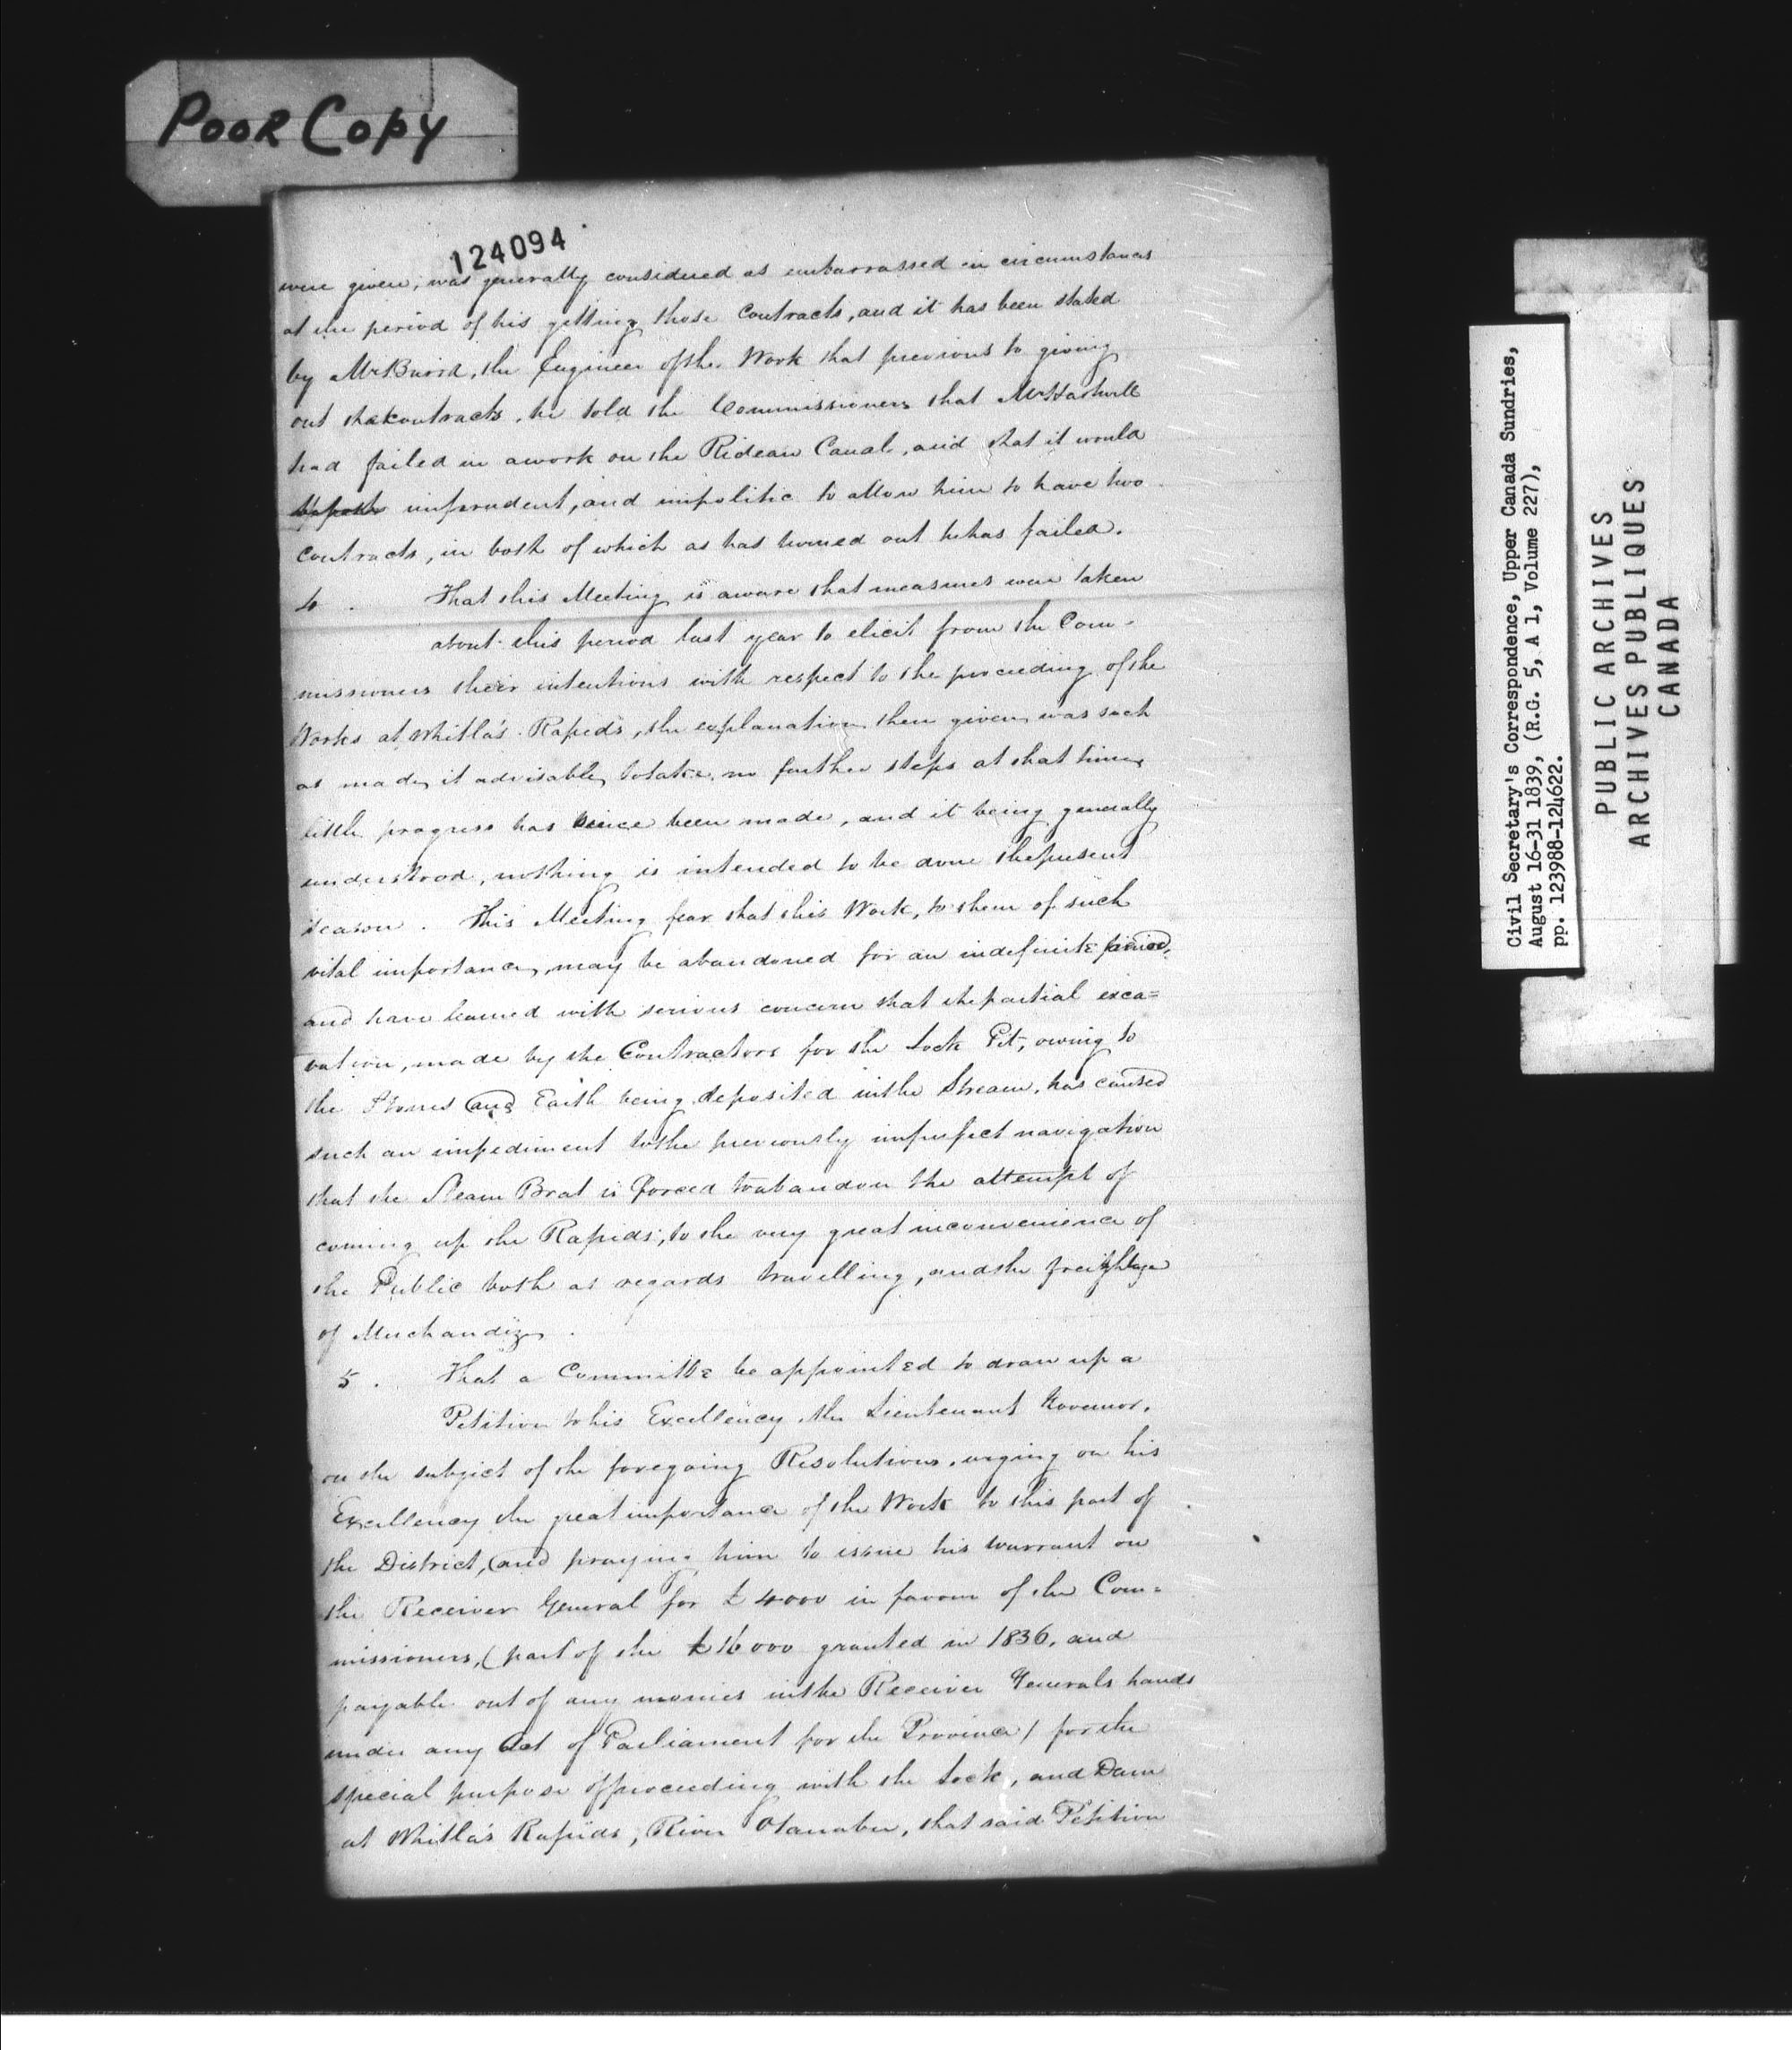 POOR COPY
124094
were given, was generally considered as embarrassed in circumstances
at the period of his getting those Contracts, and it has been stated
by Mr Baird, the Engineer of the Work that previous to giving
out the contracts, he told the Commissioners that Mr Hartwell
had failed in a work on the Rideau Canal, and that it would
imprudent, and impolitic to allow him to have two
Contracts, in both of which as has turned out he has failed.
4. That this Meeting is aware that measures were taken
about this period last year to elicit from the Com-
missioners their intentions with respect to the proceeding of the
Works at Whitla's Rapids, the explanation then given was such
as made it advisable to take no further steps at that time,
little progress has since been made, and it being generally
understood, nothing is intended to be done the present
season. This Meeting fear that this Work, to them of such
vital importance, may be abandoned for an indefinite period,
and have learned with serious concern that the partial exca=
vation, made by the Contractors for the Lock Pit, owing to
the Stones and Earth being deposited in the Stream, has caused
such an impediment to the previously imperfect navigation
that the Steam Boat is forced to abandon the attempt of
coming up the Rapids, to the very great inconvenience of
the Public both as regards travelling, and the freightage
of Merchandize.
5. That a Committe be appointed to draw up a
Petition to his Excellency, the Lieutenant Governor,
on the subject of the foregoing Resolutions, urging on his
Excellency the great importance of the Work to this part of
the District, and praying him to issue his warrant on
the Receiver General for £4000 in favour of the Com=
missioners, (part of the £16000 granted in 1836, and
payable out of any monies in the Receiver Generals hands
under any Act of Parliament for the Province) for the
special purpose of proceeding with the Lock, and Dam
at Whitla's Rapids, River Otanabee, that said Petition
Civil Secretary's Correspondence, Upper Canada Sundries,
August 16-31 1839, (R.G. 5, A 1, Volume 227),
pp. 123988-124622.
PUBLIC ARCHIVES
ARCHIVES PUBLIQUES
CANADA